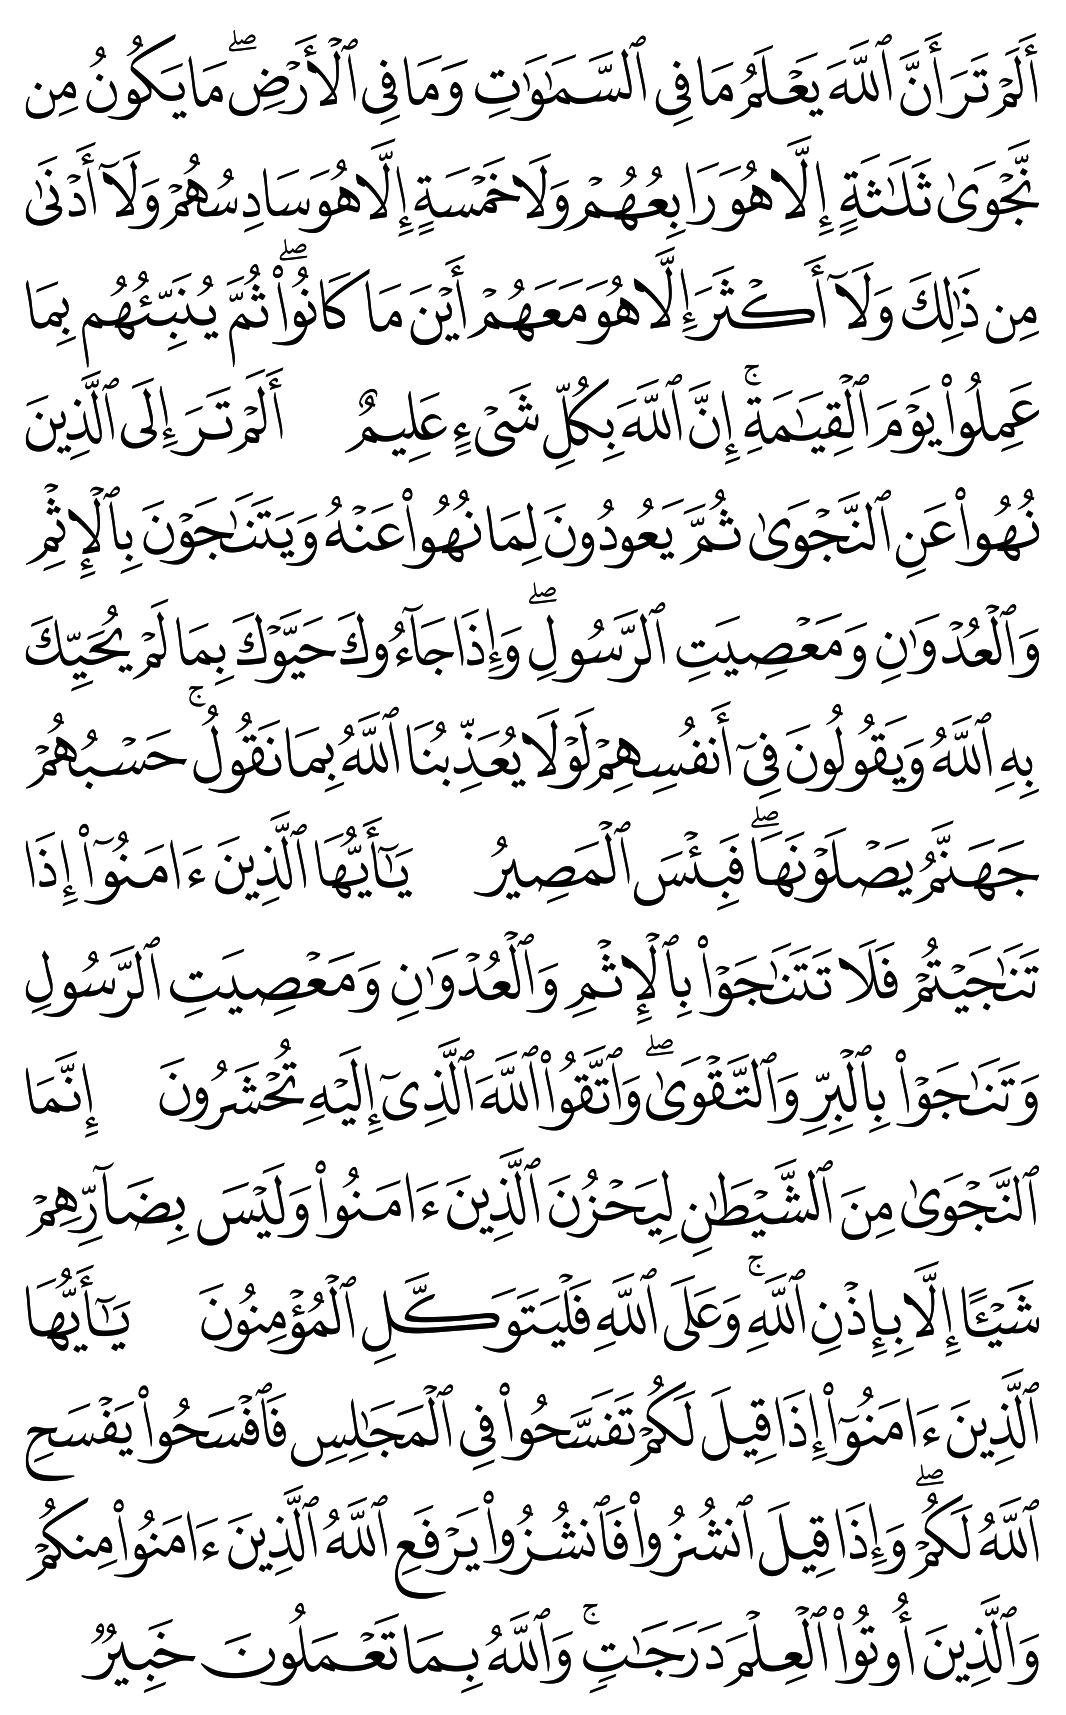 أَلَمۡ تَرَ أَنَّ ٱللَّهَ يَعۡلَمُ مَا فِي ٱلسَّمَٰوَٰتِ وَمَا فِي ٱلۡأَرۡضِۖ مَا يَكُونُ مِن
نَّجۡوَىٰ ثَلَٰثَةٍ إِلَّا هُوَ رَابِعُهُمۡ وَلَا خَمۡسَةٍ إِلَّا هُوَ سَادِسُهُمۡ وَلَآ أَدۡنَىٰ
مِن ذَٰلِكَ وَلَآ أَكۡثَرَ إِلَّا هُوَ مَعَهُمۡ أَيۡنَ مَا كَانُواْۖ ثُمَّ يُنَبِّئُهُم بِمَا
عَمِلُواْ يَوۡمَ ٱلۡقِيَٰمَةِۚ إِنَّ ٱللَّهَ بِكُلِّ شَيۡءٍ عَلِيمٌ أَلَمۡ تَرَ إِلَى ٱلَّذِينَ
نُهُواْ عَنِ ٱلنَّجۡوَىٰ ثُمَّ يَعُودُونَ لِمَا نُهُواْ عَنۡهُ وَيَتَنَٰجَوۡنَ بِٱلۡإِثۡمِ
وَٱلۡعُدۡوَٰنِ وَمَعۡصِيَتِ ٱلرَّسُولِۖ وَإِذَا جَآءُوكَ حَيَّوۡكَ بِمَا لَمۡ يُحَيِّكَ
بِهِ ٱللَّهُ وَيَقُولُونَ فِيٓ أَنفُسِهِمۡ لَوۡلَا يُعَذِّبُنَا ٱللَّهُ بِمَا نَقُولُۚ حَسۡبُهُمۡ
جَهَنَّمُ يَصۡلَوۡنَهَاۖ فَبِئۡسَ ٱلۡمَصِيرُ يَٰٓأَيُّهَا ٱلَّذِينَ ءَامَنُوٓاْ إِذَا
تَنَٰجَيۡتُمۡ فَلَا تَتَنَٰجَوۡاْ بِٱلۡإِثۡمِ وَٱلۡعُدۡوَٰنِ وَمَعۡصِيَتِ ٱلرَّسُولِ
وَتَنَٰجَوۡاْ بِٱلۡبِرِّ وَٱلتَّقۡوَىٰۖ وَٱتَّقُواْ ٱللَّهَ ٱلَّذِيٓ إِلَيۡهِ تُحۡشَرُونَ إِنَّمَا
ٱلنَّجۡوَىٰ مِنَ ٱلشَّيۡطَٰنِ لِيَحۡزُنَ ٱلَّذِينَ ءَامَنُواْ وَلَيۡسَ بِضَآرِّهِمۡ
شَيۡـًٔا إِلَّا بِإِذۡنِ ٱللَّهِۚ وَعَلَى ٱللَّهِ فَلۡيَتَوَكَّلِ ٱلۡمُؤۡمِنُونَ يَٰٓأَيُّهَا
ٱلَّذِينَ ءَامَنُوٓاْ إِذَا قِيلَ لَكُمۡ تَفَسَّحُواْ فِي ٱلۡمَجَٰلِسِ فَٱفۡسَحُواْ يَفۡسَحِ
ٱللَّهُ لَكُمۡۖ وَإِذَا قِيلَ ٱنشُزُواْ فَٱنشُزُواْ يَرۡفَعِ ٱللَّهُ ٱلَّذِينَ ءَامَنُواْ مِنكُمۡ
وَٱلَّذِينَ أُوتُواْ ٱلۡعِلۡمَ دَرَجَٰتٖۚ وَٱللَّهُ بِمَا تَعۡمَلُونَ خَبِيرٞ